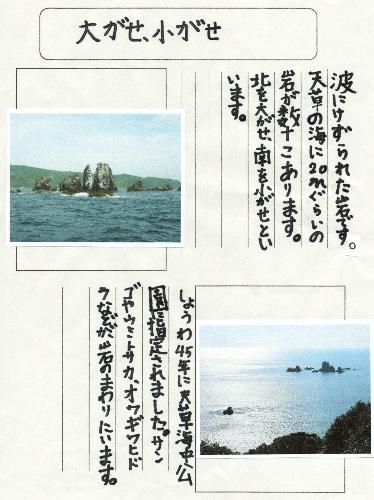 大がせ、小がせ
波にけずられた岩です。
天草の海に20mぐらいの
岩が数十こあります。
北を大がせ、南を小がせとい
います。
しょうわ45年に天草海中公
園に指定されました。サン
ゴやウミトサカ、オウギウミヒド
ラなどが岩のまわりにいます。